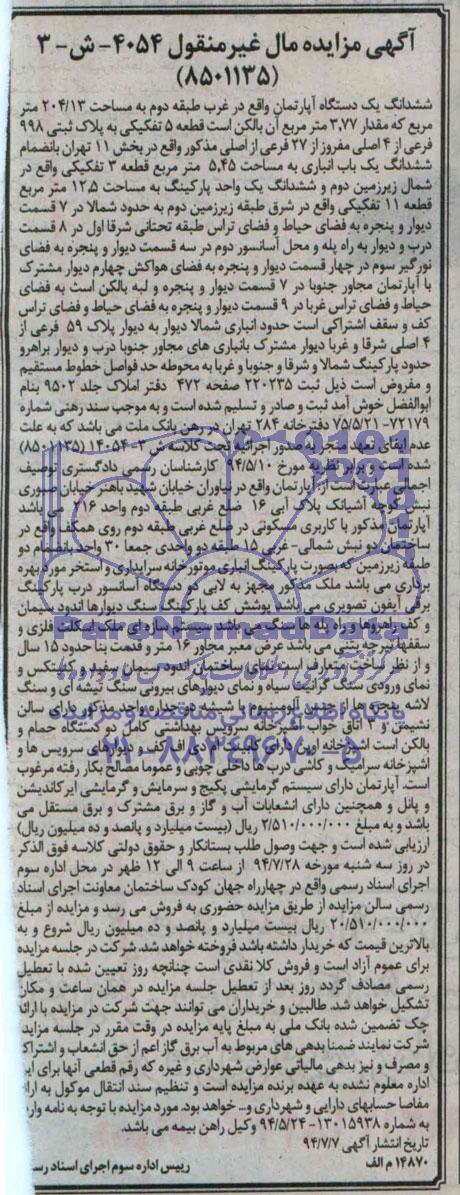 آگهی مزایده مال غیرمنقول ۴۰۵۴- ش- ۳
(۸۵۰۱۱۳۵)
ششدانگ یک دستگاه آپارتمان واقع در غرب طبقه دوم به مساحت ۲۰۴/۱۳ متر
مربع که مقدار ۳,۷۷ متر مربع آن بالکن است قطعه ۵ تفکیکی به پلاک ثبتی ۹۹۸
فرعی از ۴ اصلی مفروز از ۲۷ فرعی از اصلی مذکور واقع در بخش ۱۱ تهران بانضمام
ششدانگ یک باب انباری به مساحت ۵,۴۵ متر مربع قطعه ۳ تفکیکی واقع در
شمال زیرزمین دوم و ششدانگ یک واحد پارکینگ به مساحت ۱۲,۵ متر مربع
قطعه ۱۱ تفکیکی واقع در شرق طبقه زیرزمین دوم به حدود شمالا در ۷ قسمت
دیوار و پنجره به فضای حیاط و فضای تراس طبقه تحتانی شرقا اول در ۸ قسمت
درب و دیوار به راه پله و محل آسانسور دوم در سه قسمت دیوار و پنجره به فضای
نورگیر سوم در چهار قسمت دیوار و پنجره به فضای هواکش چهارم دیوار مشترک
با آپارتمان مجاور جنوبا در ۷ قسمت دیوار و پنجره و لبه بالکن است به فضای
حیاط و فضای تراس غربا در ۹ قسمت دیوار و پنجره به فضای حیاط و فضای تراس
کف و سقف اشتراکی است حدود انباری شمالا دیوار به دیوار پلاک ۵۹ فرعی از
۴ اصلی شرقا و غربا دیوار مشترک با انباری های مجاور جنوبا درب و دیوار براهرو
حدود پارکینگ شمالا و شرقا و جنوبا و غربا به محوطه حد فواصل خطوط مستقیم
و مفروض است ذیل ثبت ۲۲۰۲۳۵ صفحه ۴۷۲ دفتر املاک جلد ۹۵۰۲ بنام
ابوالفضل خوش آمد ثبت و صادر و تسلیم شده است و به موجب سند رهنی شماره
۷۲۱۷۹-۷۵/۵/۲۱ دفترخانه ۲۸۴ تهران در رهن بانک ملت می باشد که به علت
عدم ایفای تعهد منجر به صدور اجرائیه تحت کلاسه ش ۳- ۱۴۰۵۴ (۸۵۰۱۱۳۵)
شده است و برابر نظریه مورخ ۹۴/۵/۱۰ کارشناسان رسمی دادگستری توصیف
اجمالی عبارت است از: آپارتمان واقع در نیاوران خیابان شهید باهنر خیابان صبوری
نبش کوچه آشیانک پلاک آبی ۱۶ ضلع غربی طبقه دوم واحد ۲۱۶ می باشد
آپارتمان مذکور با کاربری مسکونی در ضلع غربی طبقه دوم روی همکف واقع در
ساختمان دو نبش شمالی- غربی ۱۵ طبقه دو واحدی جمعا ۳۰ واحد بانضمام دو
طبقه زیرزمین که بصورت پارکینگ انباری موتورخانه سرایداری و استخر مورد بهره
برداری می باشد ملک مذکور مجهز به لابی دو دستگاه آسانسور درب پارکینگ
برقی آیفون تصویری می باشد پوشش کف پارکینگ سنگ دیوارها اندود سیمان
و کف راهروها و راه پله ها سنگ می باشد سیستم سازه ای ملک اسکلت فلزی و
سقفها تیرچه بتنی می باشد عرض معبر مجاور ۱۶ متر و قدمت بنا حدود ۱۵ سال
و از نظر ساخت متعارف است نمای ساختمان اندود سیمان سفید و کنیتکس و
نمای ورودی سنگ گرانیت سیاه و نمای دیوارهای بیرونی سنگ تیشه ای و سنگ
لاشه پنجره ها از جنس آلومینیوم با شیشه دو جداره واحد مذکور دارای سالن
نشیمن و ۳ اتاق خواب آشپزخانه سرویس بهداشتی کامل دو دستگاه حمام و
بالکن است آشپزخانه اوپن دارای کابینت ام دی اف کف و دیوارهای سرویس ها و
آشپزخانه سرامیک و کاشی درب ها داخلی چوبی و عموما مصالح بکار رفته مرغوب
است. آپارتمان دارای سیستم گرمایشی پکیج و سرمایش و گرمایشی ایرکاندیشن
و پانل و همچنین دارای انشعابات آب و گاز و برق مشترک و برق مستقل می
باشد و به مبلغ ۲/۵۱۰/۰۰۰/۰۰۰ ریال (بیست میلیارد و پانصد و ده میلیون ریال)
ارزیابی شده است و جهت وصول طلب بستانکار و حقوق دولتی کلاسه فوق الذکر
در روز سه شنبه مورخه ۹۴/۷/۲۸ از ساعت ۹ الی ۱۲ ظهر در محل اداره سوم
اجرای اسناد رسمی واقع در چهارراه جهان کودک ساختمان معاونت اجرای اسناد
رسمی سالن مزایده از طریق مزایده حضوری به فروش می رسد و مزایده از مبلغ
۲۰/۵۱۰/۰۰۰/۰۰۰ ریال بیست میلیارد و پانصد و ده میلیون ریال شروع و به
بالاترین قیمت که خریدار داشته باشد فروخته خواهد شد. شرکت در جلسه مزایده
برای عموم آزاد است و فروش کلا نقدی است چنانچه روز تعیین شده با تعطیل
رسمی مصادف گردد روز بعد از تعطیل جلسه مزایده در همان ساعت و مکان
تشکیل خواهد شد. طالبین و خریداران می توانند جهت شرکت در مزایده با ارائه
چک تضمین شده بانک ملی به مبلغ پایه مزایده در وقت مقرر در جلسه مزایده
شرکت نمایند ضمنا بدهی های مربوط به آب برق گاز اعم از حق انشعاب و اشتراک
و مصرف و نیز بدهی مالیاتی عوارض شهرداری و غیره که رقم قطعی آنها برای این
اداره معلوم نشده به عهده برنده مزایده است و تنظیم سند انتقال موکول به ارائه
مفاصا حسابهای دارایی و شهرداری و.. خواهد بود. مورد مزایده با توجه به نامه وارده
به شماره ۱۳۰۱۵۹۳۸- ۹۴/۵/۲۴ وکیل راهن بیمه می باشد.
تاریخ انتشار آگهی ۹۴/۷/۷
۱۴۸۷۰ م الف رییس اداره سوم اجرای اسناد رس
ParsNamadData
پایگاه اطلاع رسانی مناقصه و مزایده
۰۲۱-۸۸۳۴۹۶۷۰-۵